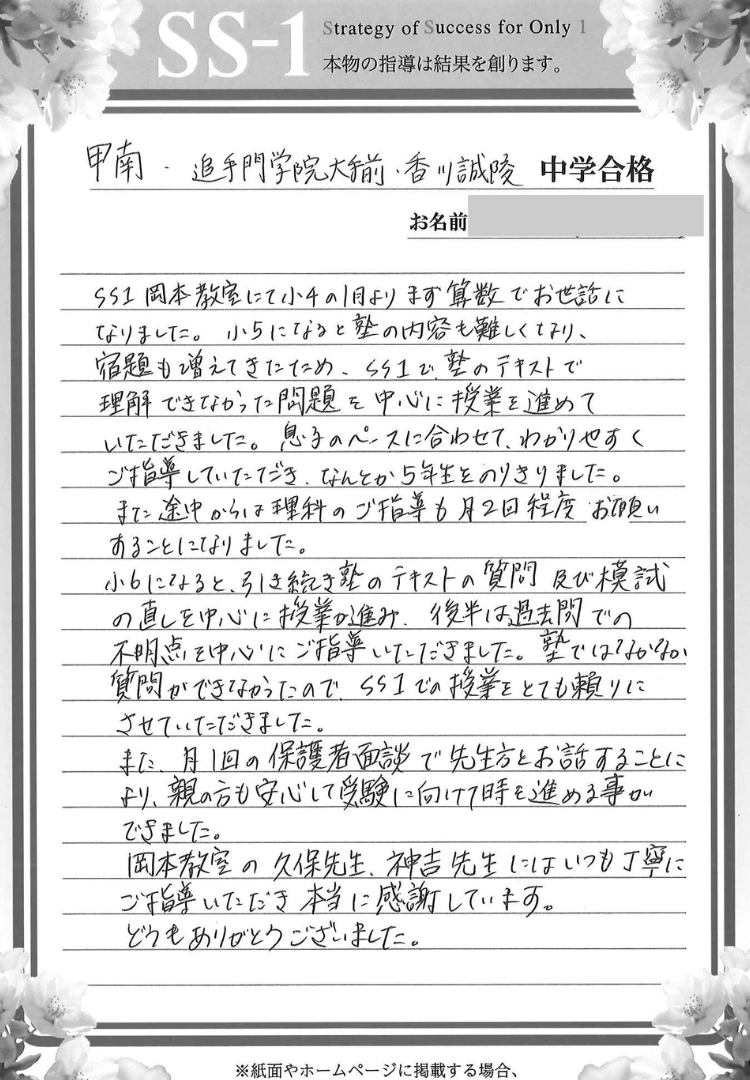 SS-1
Strategy of Success for Only 1
本物の指導は結果を創ります。
甲南・追手門学院大手前・香川誠陵 中学合格
お名前
SS1岡本教室にて小4の1月よりまず算数でお世話に
なりました。小5になると塾の内容も難しくなり、
宿題も増えてきたため、SS1で、塾のテキストで
理解できなかった問題を中心に授業を進めて
いただきました。息子のペースに合わせて、わかりやすく
ご指導していただき、なんとか5年生をのりきりました。
また途中からは理科のご指導も月2回程度お願い
することになりました。
小6になると、引き続き塾のテキストの質問及び模試
の直しを中心に授業が進み、後半は過去問での
不明点を中心にご指導いただきました。塾ではなかなか
質問ができなかったので、SS1での授業をとても頼りに
させていただきました。
また、月1回の保護者面談で先生方とお話することに
より、親の方も安心して受験に向けて時を進める事が
できました。
岡本教室の久保先生、神吉先生にはいつも丁寧に
ご指導いただき本当に感謝しています。
どうもありがとうございました。
※紙面やホームページに掲載する場合、